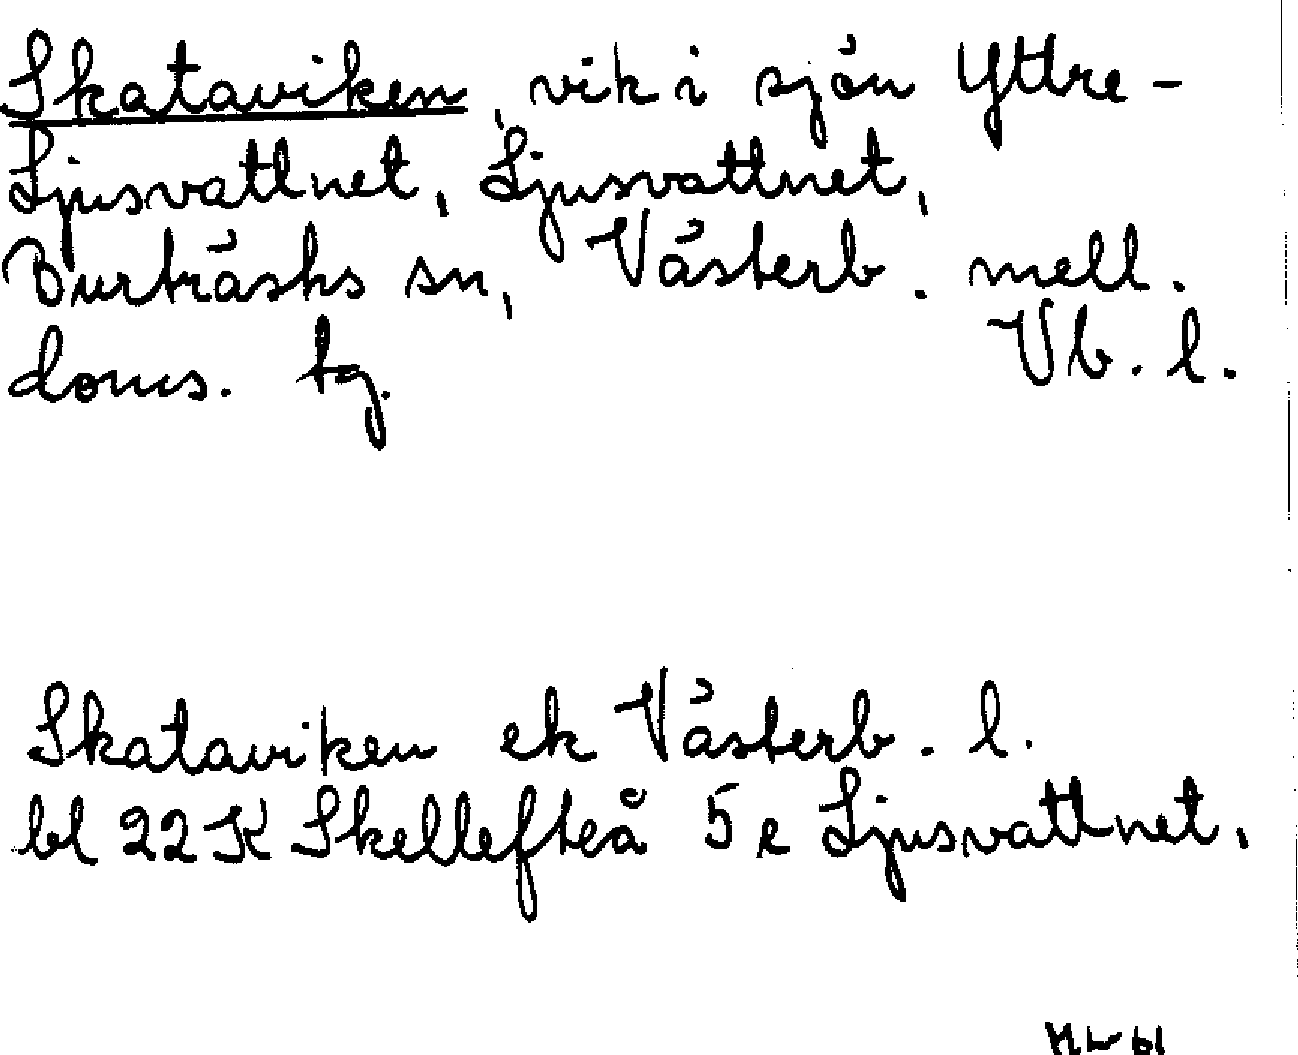 Skataviken, vik i sjön Yttre-
Ljusvattnet, Ljusvattnet,
Burträsks sn, Västerb. mell.
doms. tg. Vb. l.
Skataviken ek Västerb. l.
bl 22K Skellefteå 5 e Ljusvattnet,